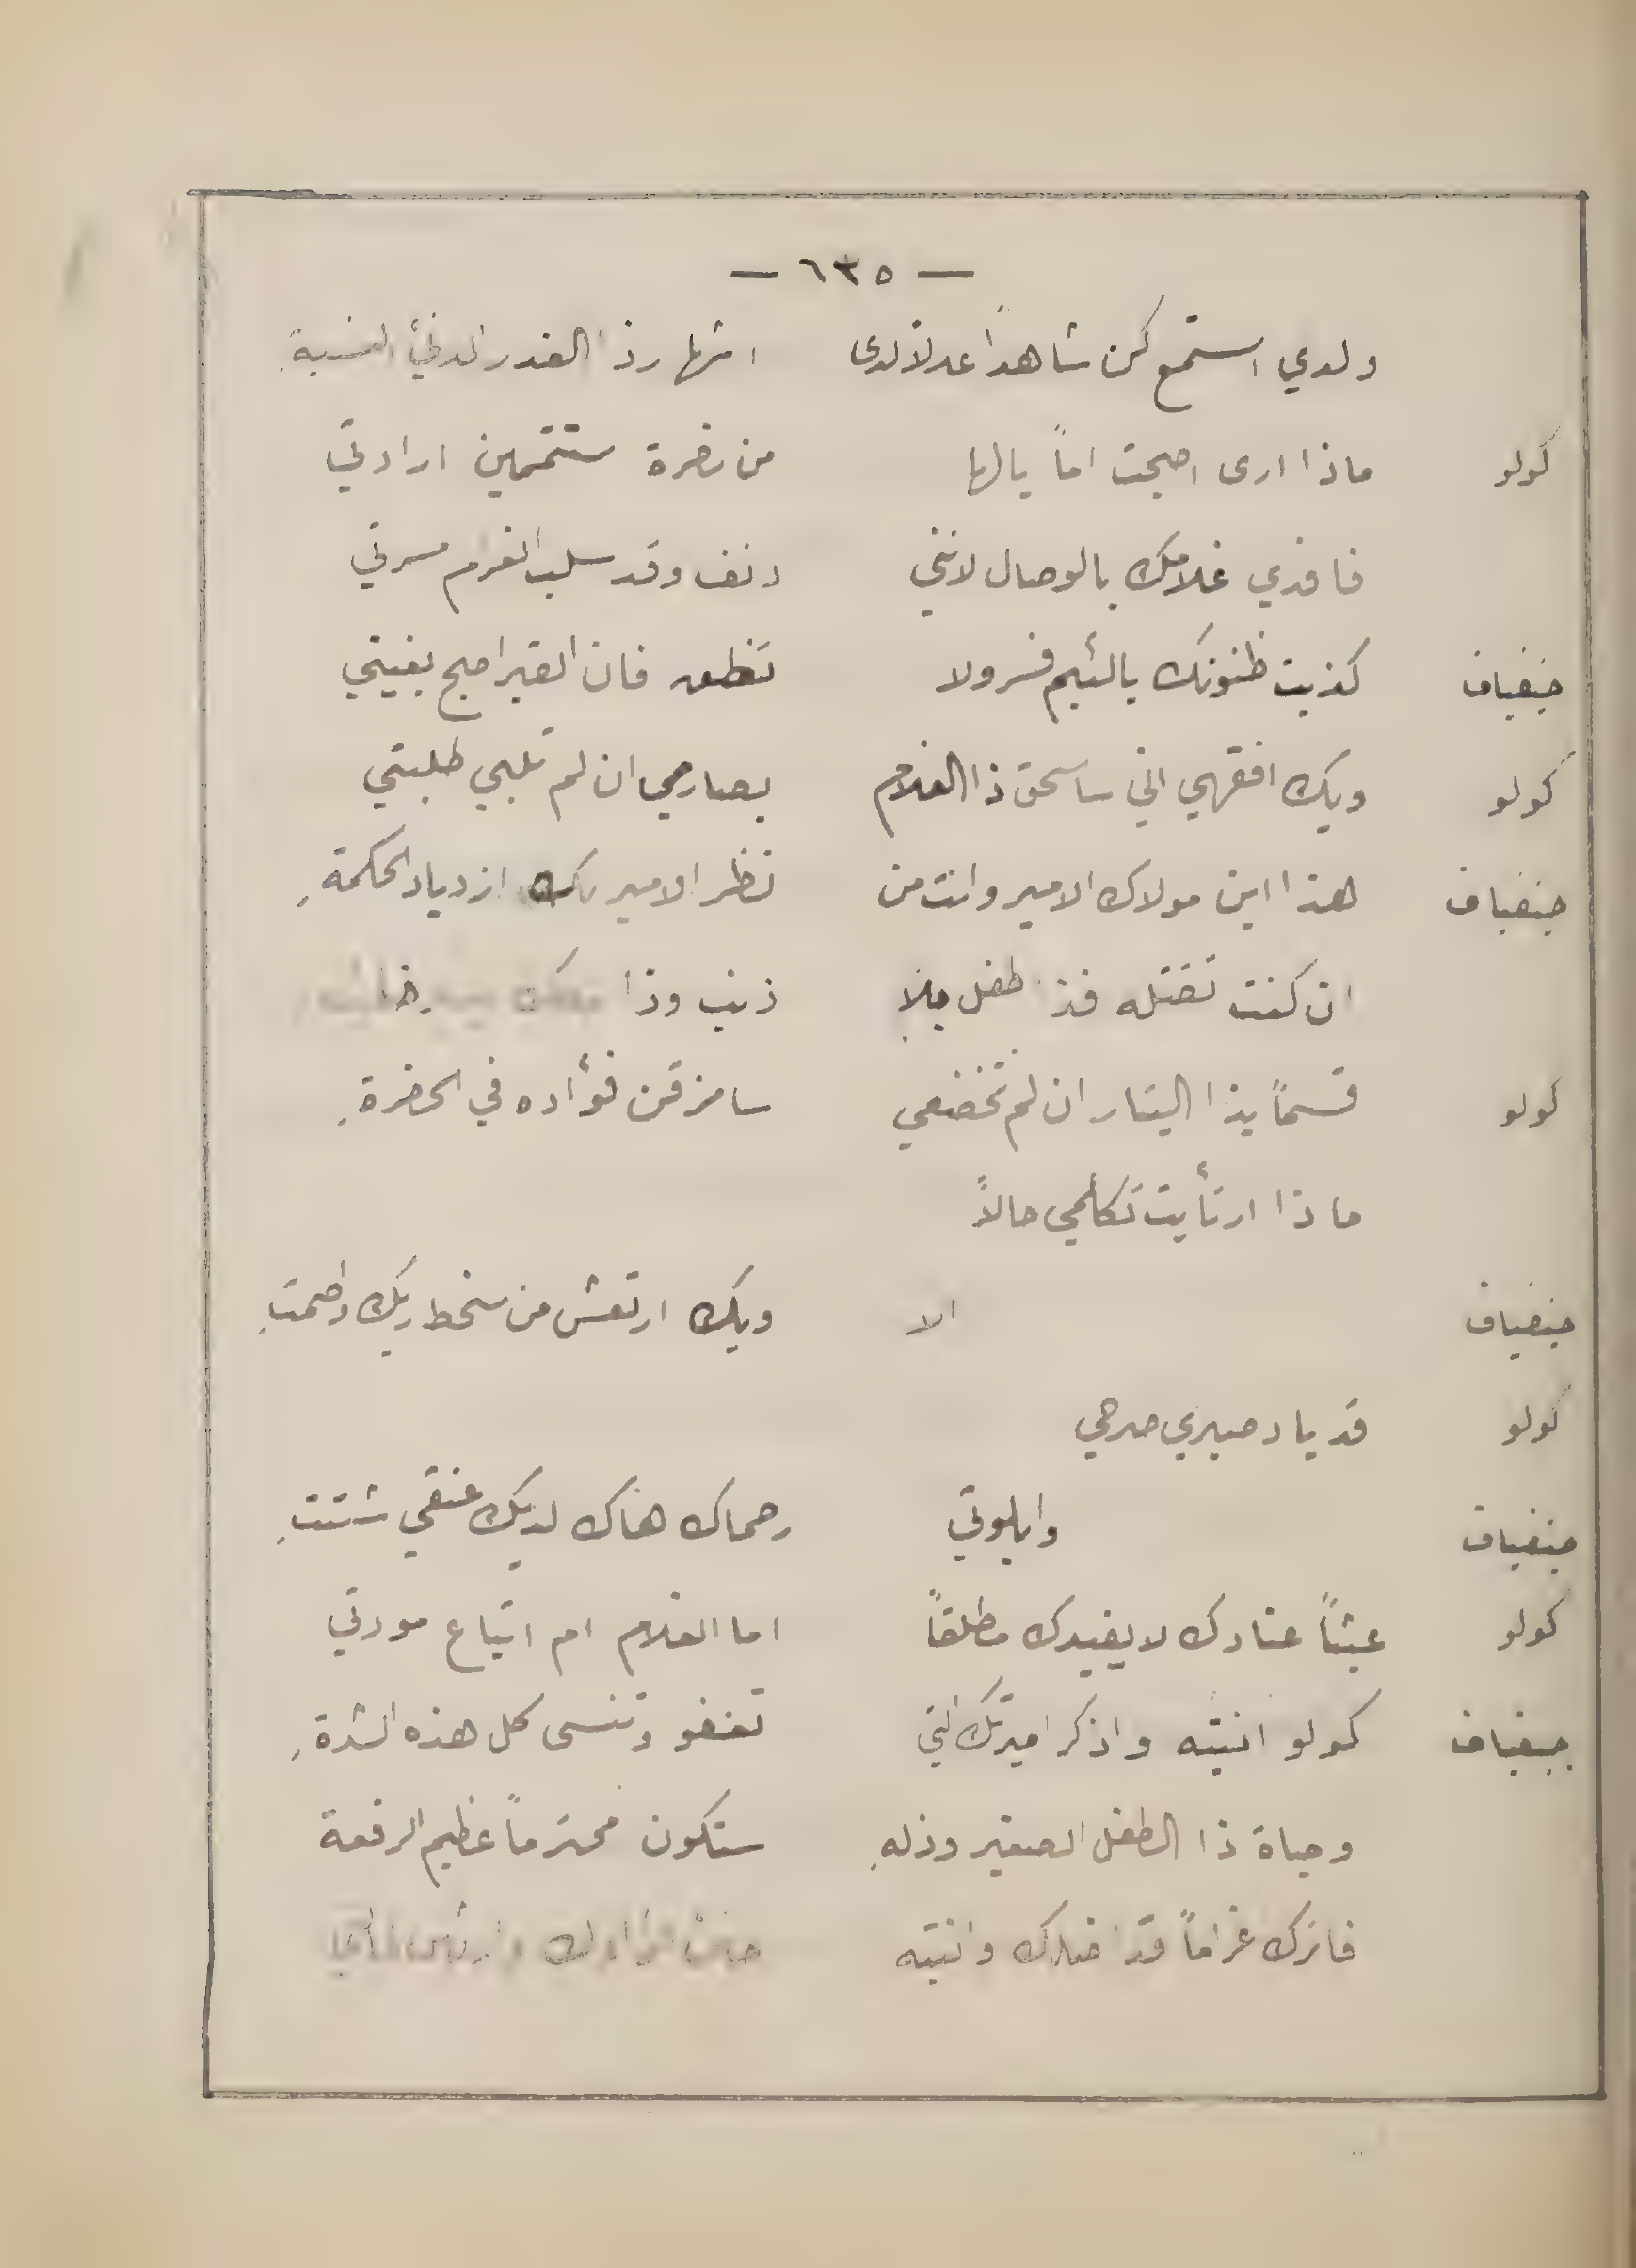 — ٦٣٥ —
ولدي استمع كن شاهداً عدلاً لدى اشهار ذا الغدر الدنيْ النسبة
كولو ماذا ارى اصبحت اماً يالها من نضرة ستتممين ارادتي
فافدي غلامك بالوصال لانني دنف وقد سلب الغرام مسرتي
جنفياف كذبت ظنونك يالئيم فسر ولا تنطق فان القبر اصبح بغيتي
كولو ويك افقهي اني ساسحق ذا الغلام بصارمي ان لم تلبي طلبتي
جنفياف هذا ابن مولاك الامير وانت من نظر الامير بك ازدياد الحكمة
ان كنت تقتله فذا طفل بلا ذنب وذا
كولو قسماً بذا البتار ان لم تخضعي سامزقن فؤاده في الحضرة
ماذا ارتأيت تكلمي حالاً
جنفياف الا ويك ارتعش من سخط ربك واصمت
كولو قد باد صبري صرحي
جنفياف وابلوتي رحماك هناك لديك عنقي شتت
كولو عبثاً عنادك لا يفيدك مطلقاً اما الغلام ام اتباع مودتي
جنفياف كولو انتبه واذكر اميرتك التي تعفو وتنسى كل هذه الشدة
وحياة ذا الطفل الصغير وذله ستكون محترماً عظيم الرفعة
فاترك غراماً قد اضلك وانتبه